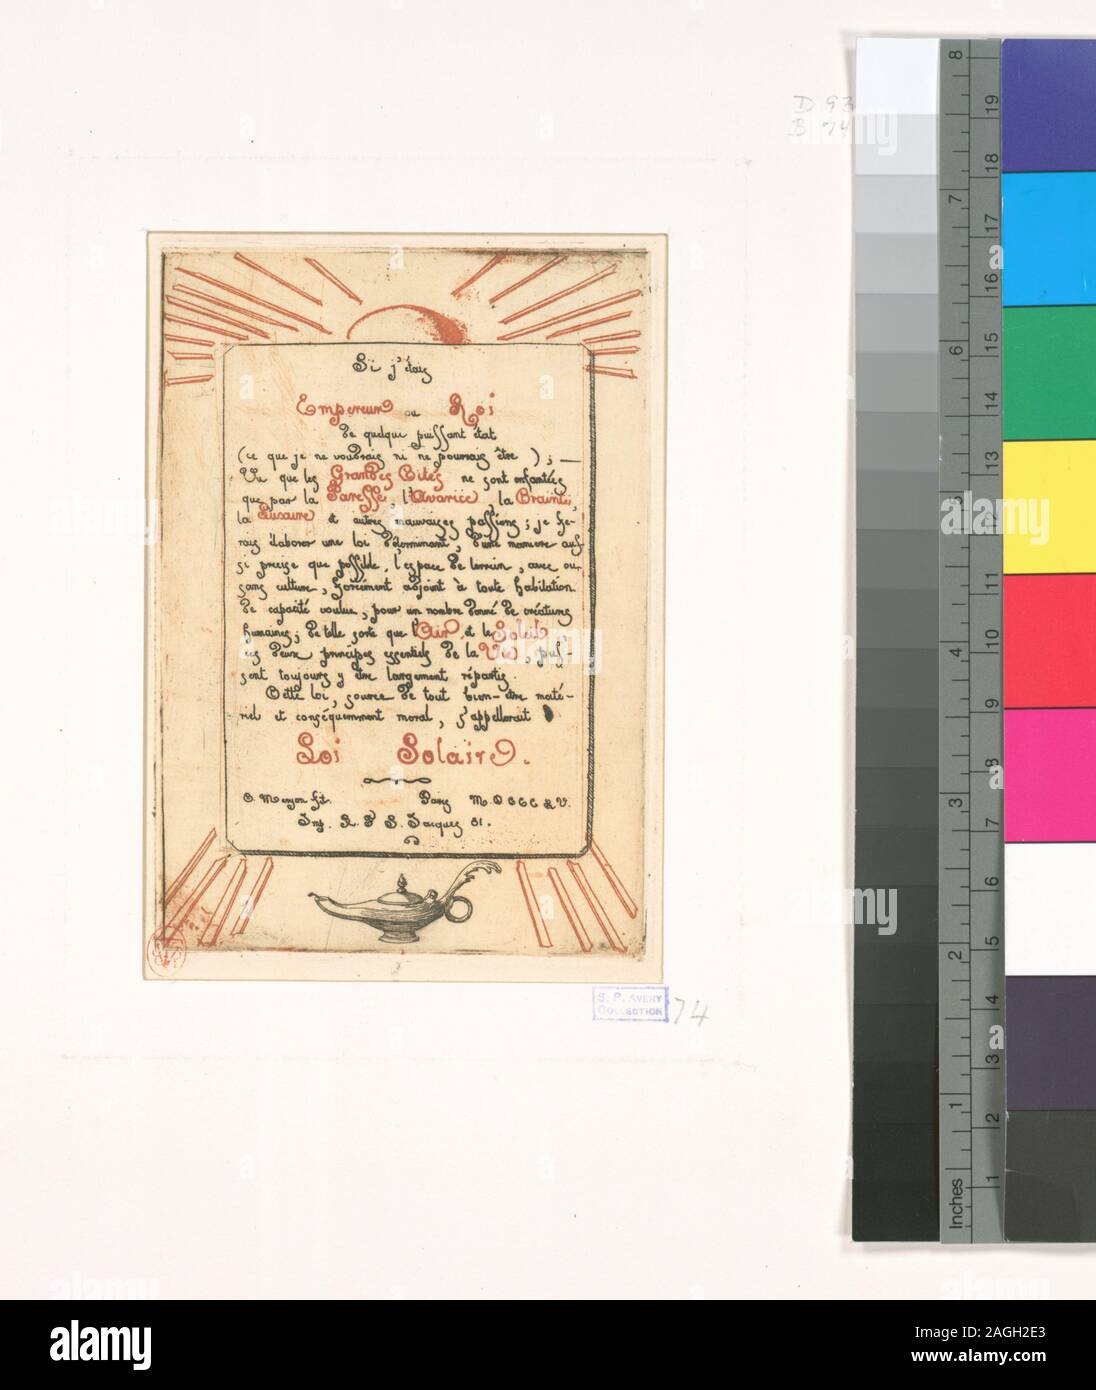 D 93
B 74
Si j'étais
Empereur ou Roi
de quelque puissant état
(ce que je ne voudrais ni ne pourrais être) ; —
Vu que les Grandes Cités ne sont enfantées
que par la Paresse, l'Avarice, la Crainte,
la Luxure et autres mauvaises passions ; je fe-
rais élaborer une loi déterminant, d'une manière aus-
si précise que possible, l'espace de terrain, avec ou
sans culture, forcément adjoint à toute habitation
de capacité voulue, pour un nombre donné de créatures
humaines ; de telle sorte que l'Air et le Soleil
ces deux principes essentiels de la Vie, puis-
sent toujours y être largement répartis.
Cette loi, source de tout bien-être maté-
riel et conséquemment moral, s'appellerait
Loi Solaire.
C. Meryon fit. Paris M.DCCCLV.
Imp. R. F S. Jacques 81.
S. P. AVERY
COLLECTION
74
8 7 6 5 4 3 2 1 Inches
19 18 17 16 15 14 13 12 11 10 9 8 7 6 5 4 3 2 1
alamy
alamy
Image ID: 2AGH2E3
www.alamy.com